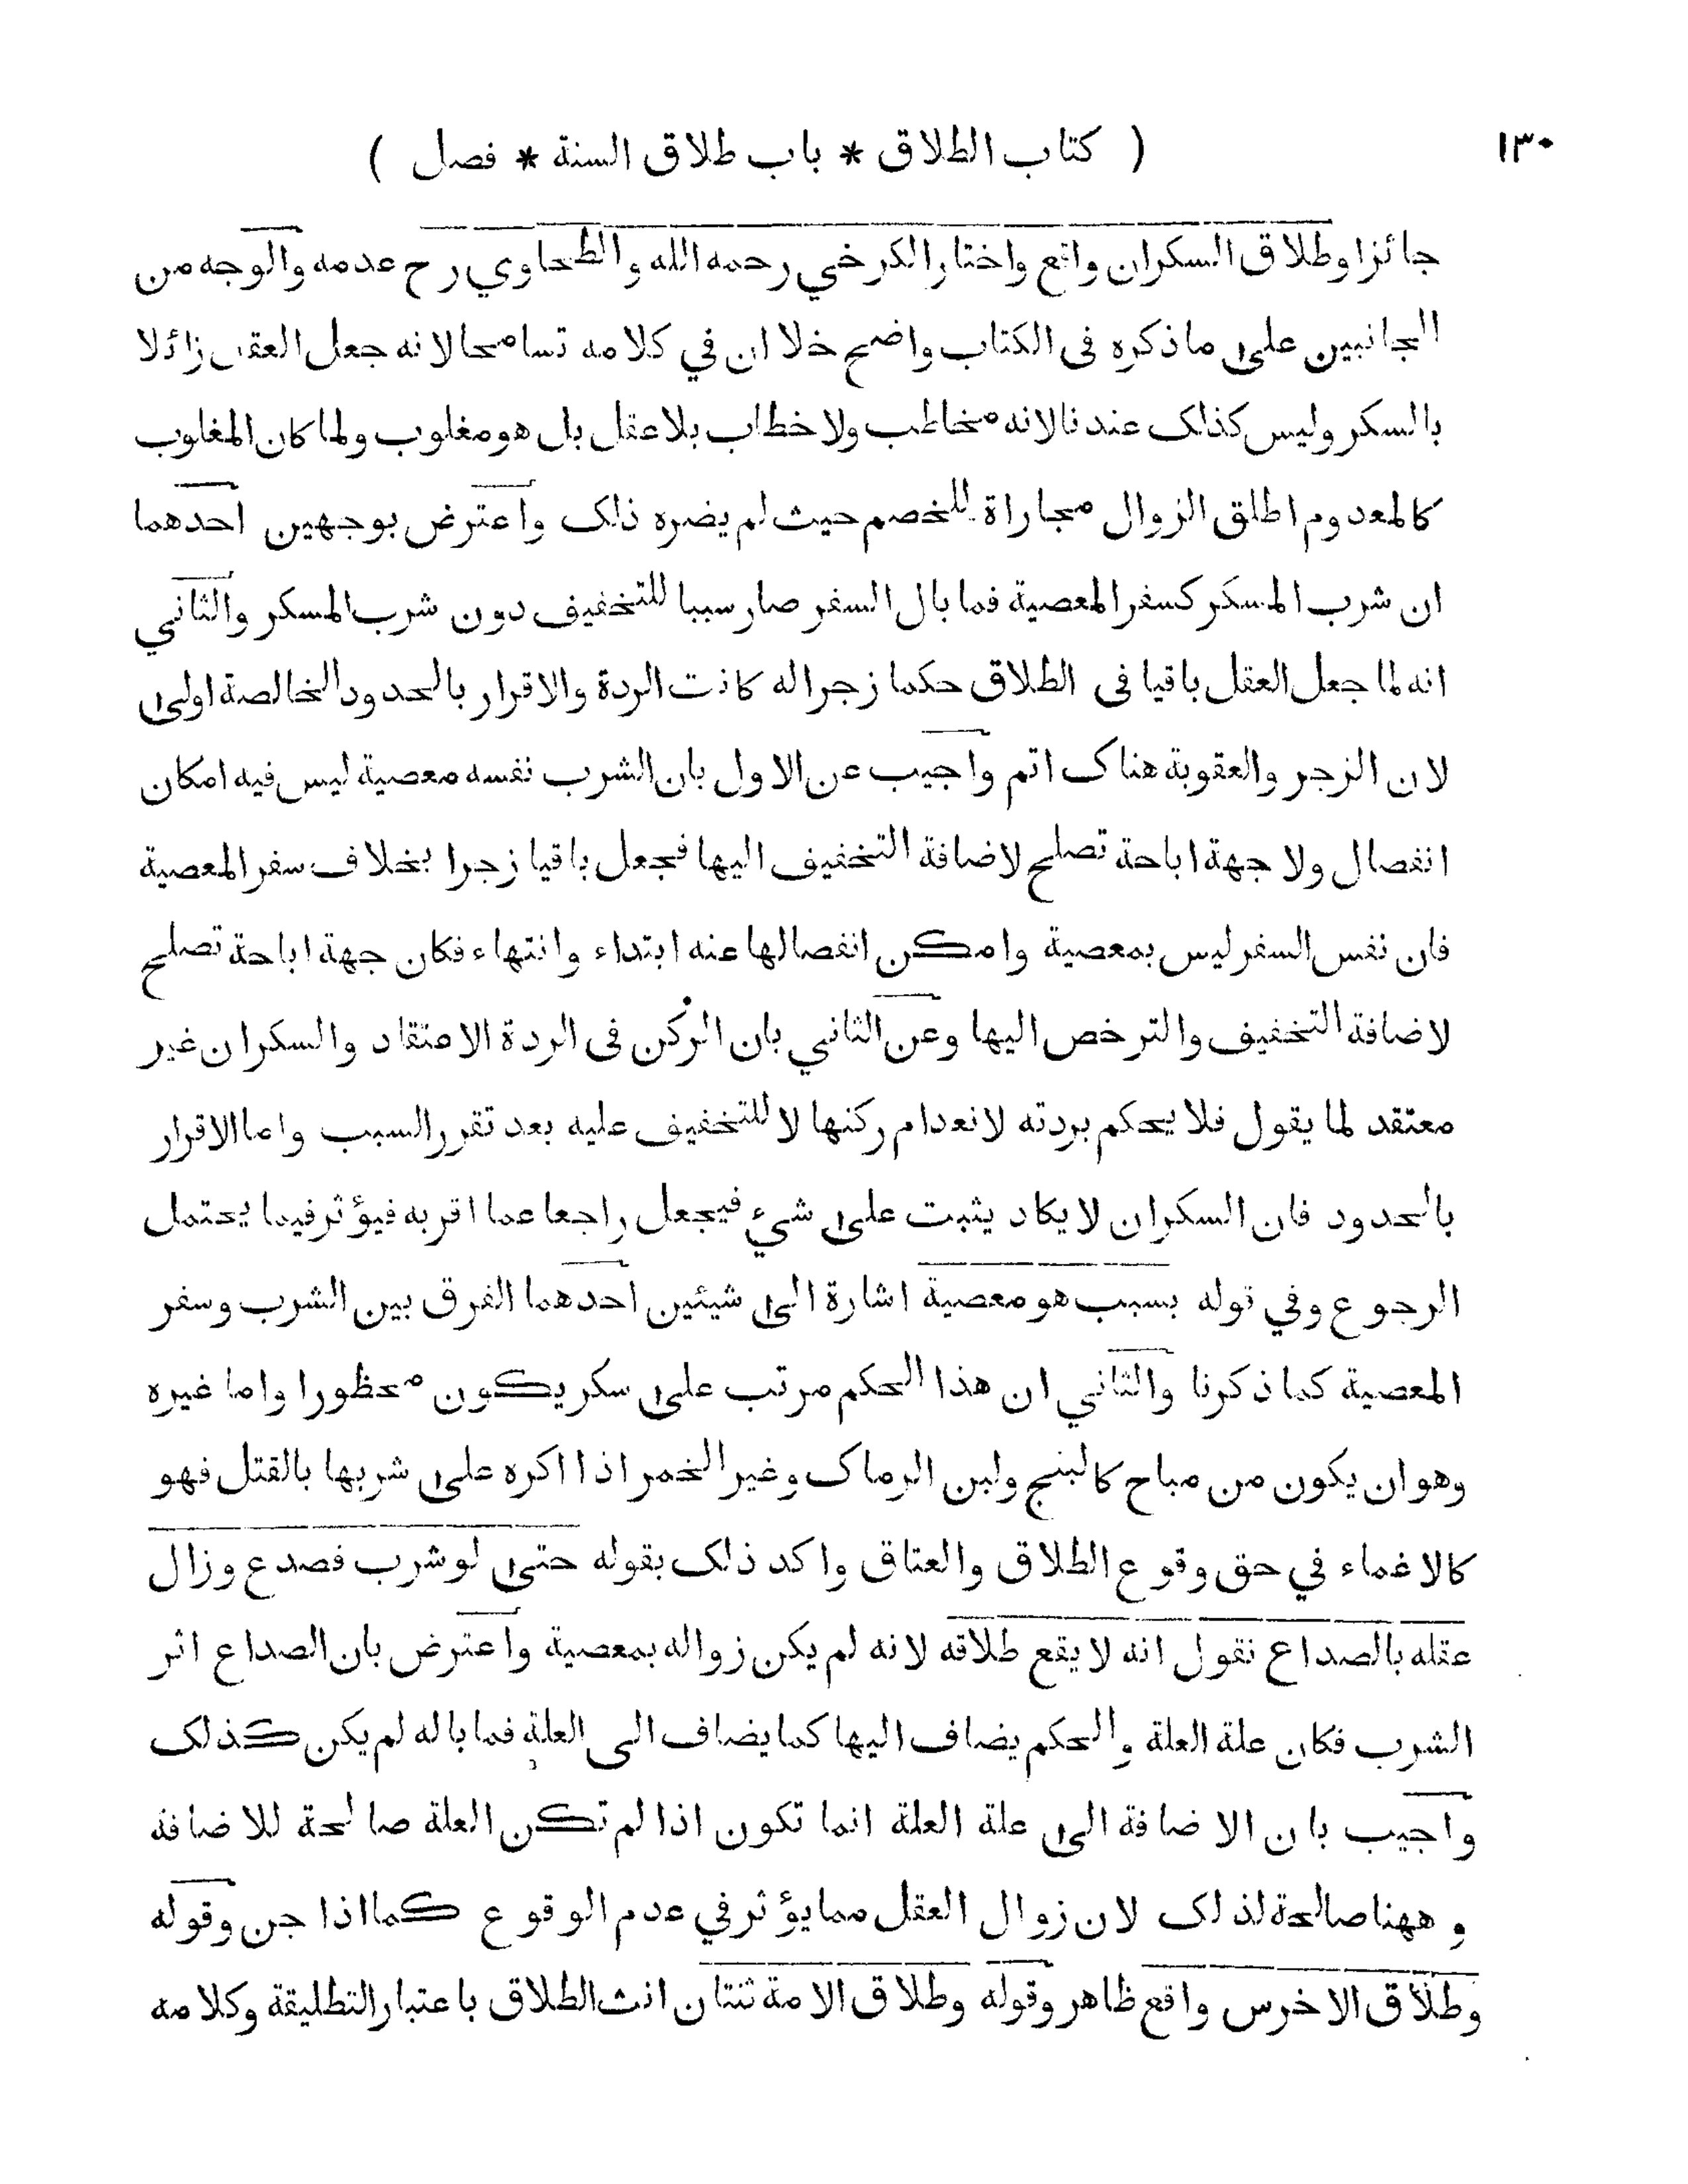 ١٣٠
( كتاب الطلاق * باب طلاق السنة * فصل )
جائزا وطلاق السكران واقع واختار الكرخي رحمه الله والطحاوي رح عدمه والوجه من
الجانبين على ما ذكره فى الكتاب واضح خلا ان في كلامه تسامحا لانه جعل العقل زائلا
بالسكر وليس كذلك عندنا لانه مخاطب ولا خطاب بلا عقل بل هو مغلوب ولما كان المغلوب
كالمعدوم اطلق الزوال مجاراة للخصم حيث لم يضره ذلك واعترض بوجهين احدهما
ان شرب المسكر كسفر المعصية فما بال السفر صار سببا للتخفيف دون شرب المسكر والثاني
انه لما جعل العقل باقيا فى الطلاق حكما زجرا له كانت الردة والاقرار بالحدود الخالصة اولى
لان الزجر والعقوبة هناك اتم واجيب عن الاول بان الشرب نفسه معصية ليس فيه امكان
انفصال ولا جهة اباحة تصلح لاضافة التخفيف اليها فجعل باقيا زجرا بخلاف سفر المعصية
فان نفس السفر ليس بمعصية وامكن انفصالها عنه ابتداء وانتهاء فكان جهة اباحة تصلح
لاضافة التخفيف والترخص اليها وعن الثاني بان الركن فى الردة الاعتقاد والسكران غير
معتقد لما يقول فلا يحكم بردته لانعدام ركنها لا للتخفيف عليه بعد تقرر السبب واما الاقرار
بالحدود فان السكران لا يكاد يثبت على شيء فيجعل راجعا عما اقر به فيؤثر فيما يحتمل
الرجوع وفي قوله بسبب هو معصية اشارة الى شيئين احدهما الفرق بين الشرب وسفر
المعصية كما ذكرنا والثاني ان هذا الحكم مرتب على سكر يكون محظورا واما غيره
وهو ان يكون من مباح كالبنج ولبن الرماك وغير الخمر اذا اكره على شربها بالقتل فهو
كالاغماء في حق وقوع الطلاق والعتاق واكد ذلك بقوله حتى لو شرب فصدع وزال
عقله بالصداع نقول انه لا يقع طلاقه لانه لم يكن زواله بمعصية واعترض بان الصداع اثر
الشرب فكان علة العلة والحكم يضاف اليها كما يضاف الى العلة فما باله لم يكن كذلك
واجيب بان الاضافة الى علة العلة انما تكون اذا لم تكن العلة صالحة للاضافة
وههنا صالحة لذلك لان زوال العقل مما يؤثر في عدم الوقوع كما اذا جن وقوله
وطلاق الاخرس واقع ظاهر وقوله وطلاق الامة ثنتان انث الطلاق باعتبار التطليقة وكلامه